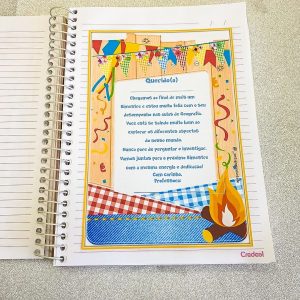 Querido(a)
Chegamos ao final de mais um
Bimestre e estou muito feliz com o seu
desempenho nas aulas de Geografia.
Você está se saindo muito bem ao
explorar os diferentes aspectos
do nosso mundo.
Nunca pare de perguntar e investigar.
Vamos juntos para o próximo Bimestre
com a mesma energia e dedicação!
Com carinho,
Professora:
Credeal